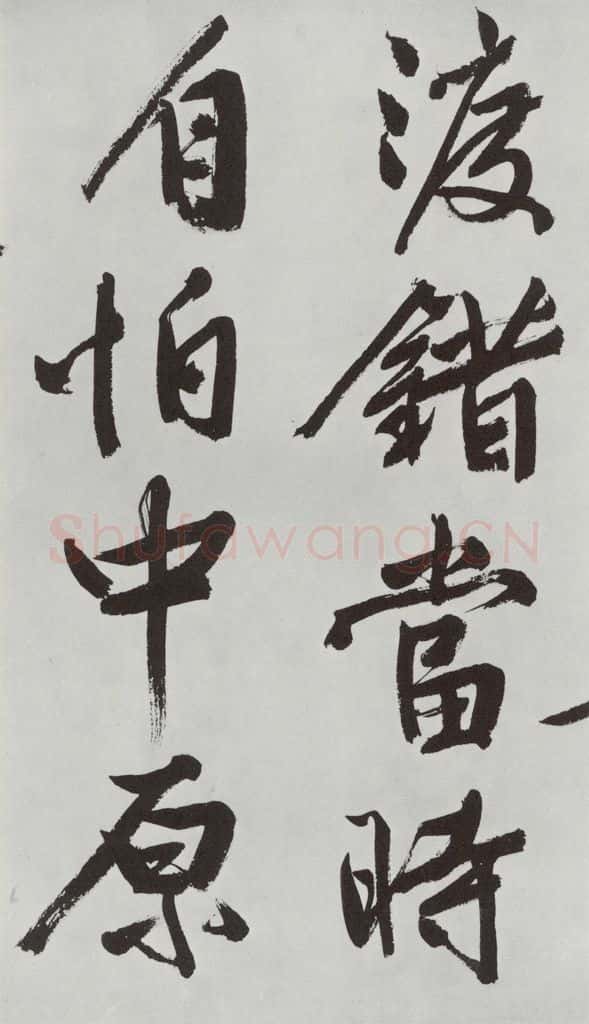 渡錯當時
自怕中原
Shufawang.CN